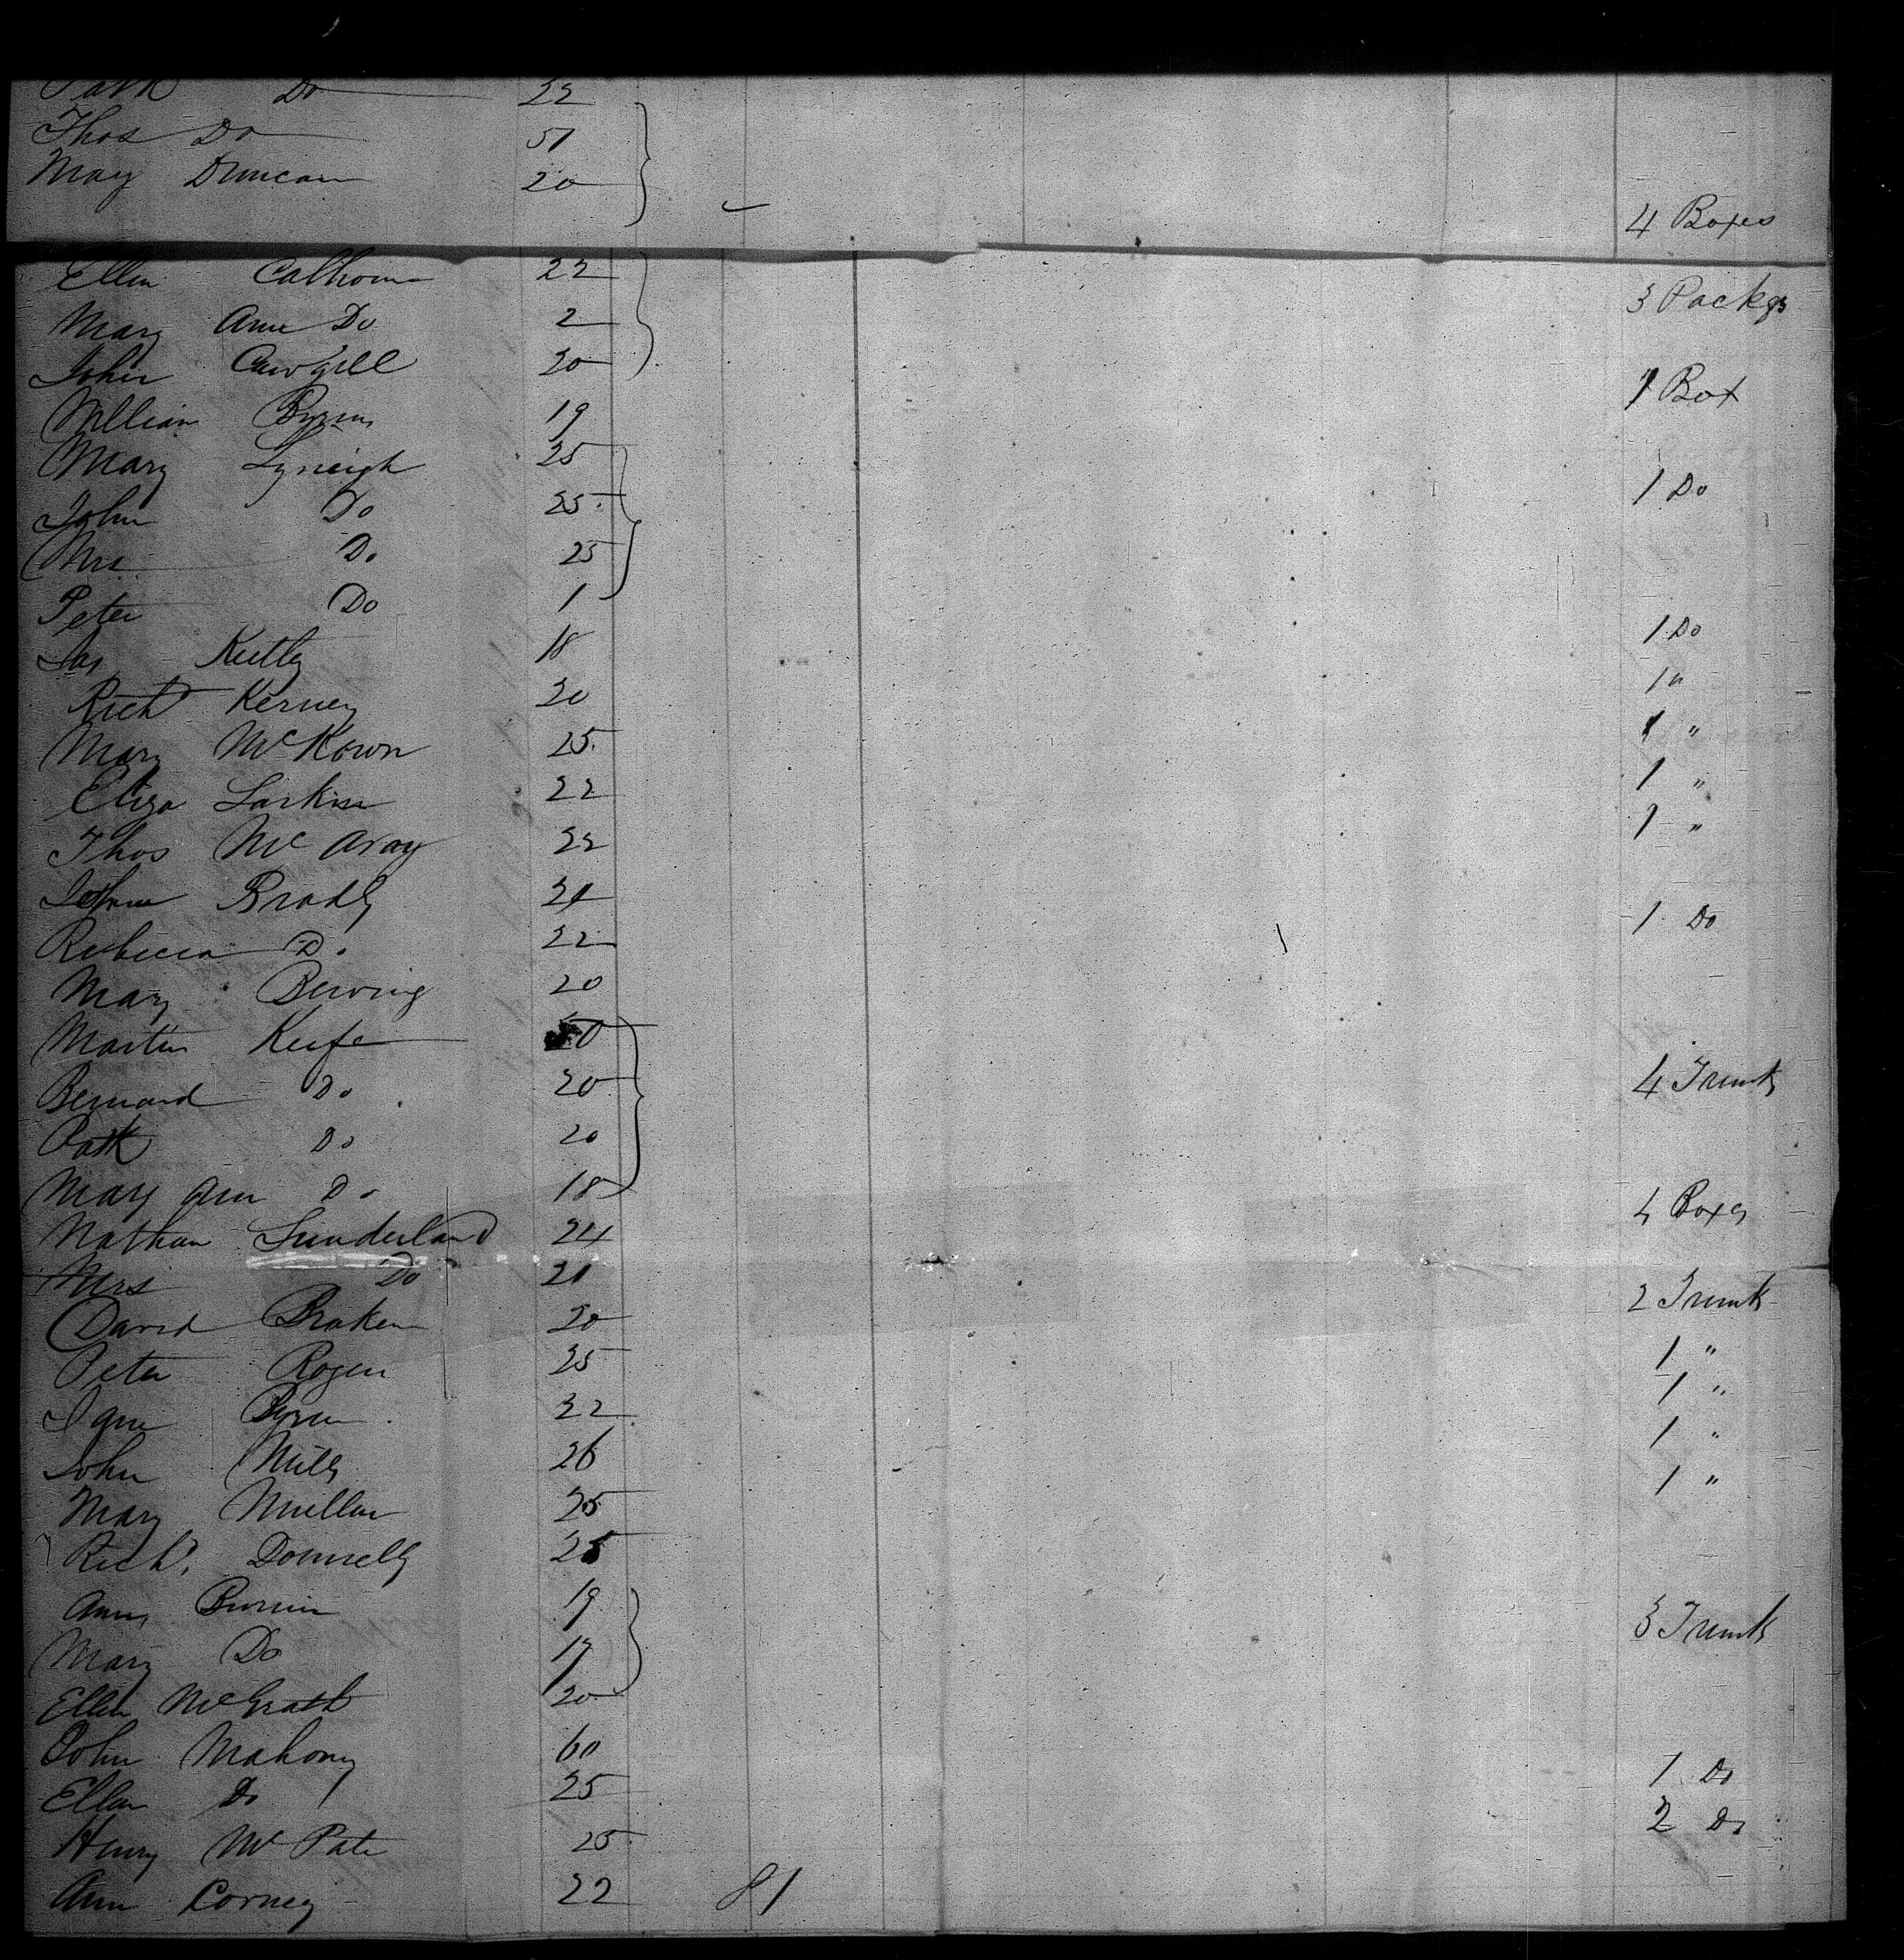 Patk Do 22
Thos Do 51
Mary Duncan 20
4 Boxes
Ellen Calhoun 22
3 Packgs
Mary Ann Do 2
John Cawgill 20
1 Box
William Byrn 19
Mary Lyneigh 25
1 Do
John Do 25
Mrs Do 25
Peter Do 1
1 Do
Jas Keitly 18
1 "
Richd Kerney 20
1 "
Mary McKown 25
1 "
Eliza Larkin 22
1 "
Thos McAvay 22
John Bradly 21
1 Do
Rebecca Do 22
Mary Berving 20
Martin Keefe 50
4 Trunks
Bernard Do 20
Patk Do 20
Mary Ann Do 18
4 Boxes
Nathan Sunderland 24
Mrs Do 21
2 Trunks
David Braken 20
1 "
Peter Rogers 25
1 "
Jane Byrne 22
1 "
John Mills 26
1 "
Mary Mullan 25
Richd. Donnelly 25
Ann 19
3 Trunks
Mary Do 17
Ellen McGrath 20
John Mahony 60
1 Do
Ellen Do 25
2 Do
Henry McPate 25
Ann Corney 22 81